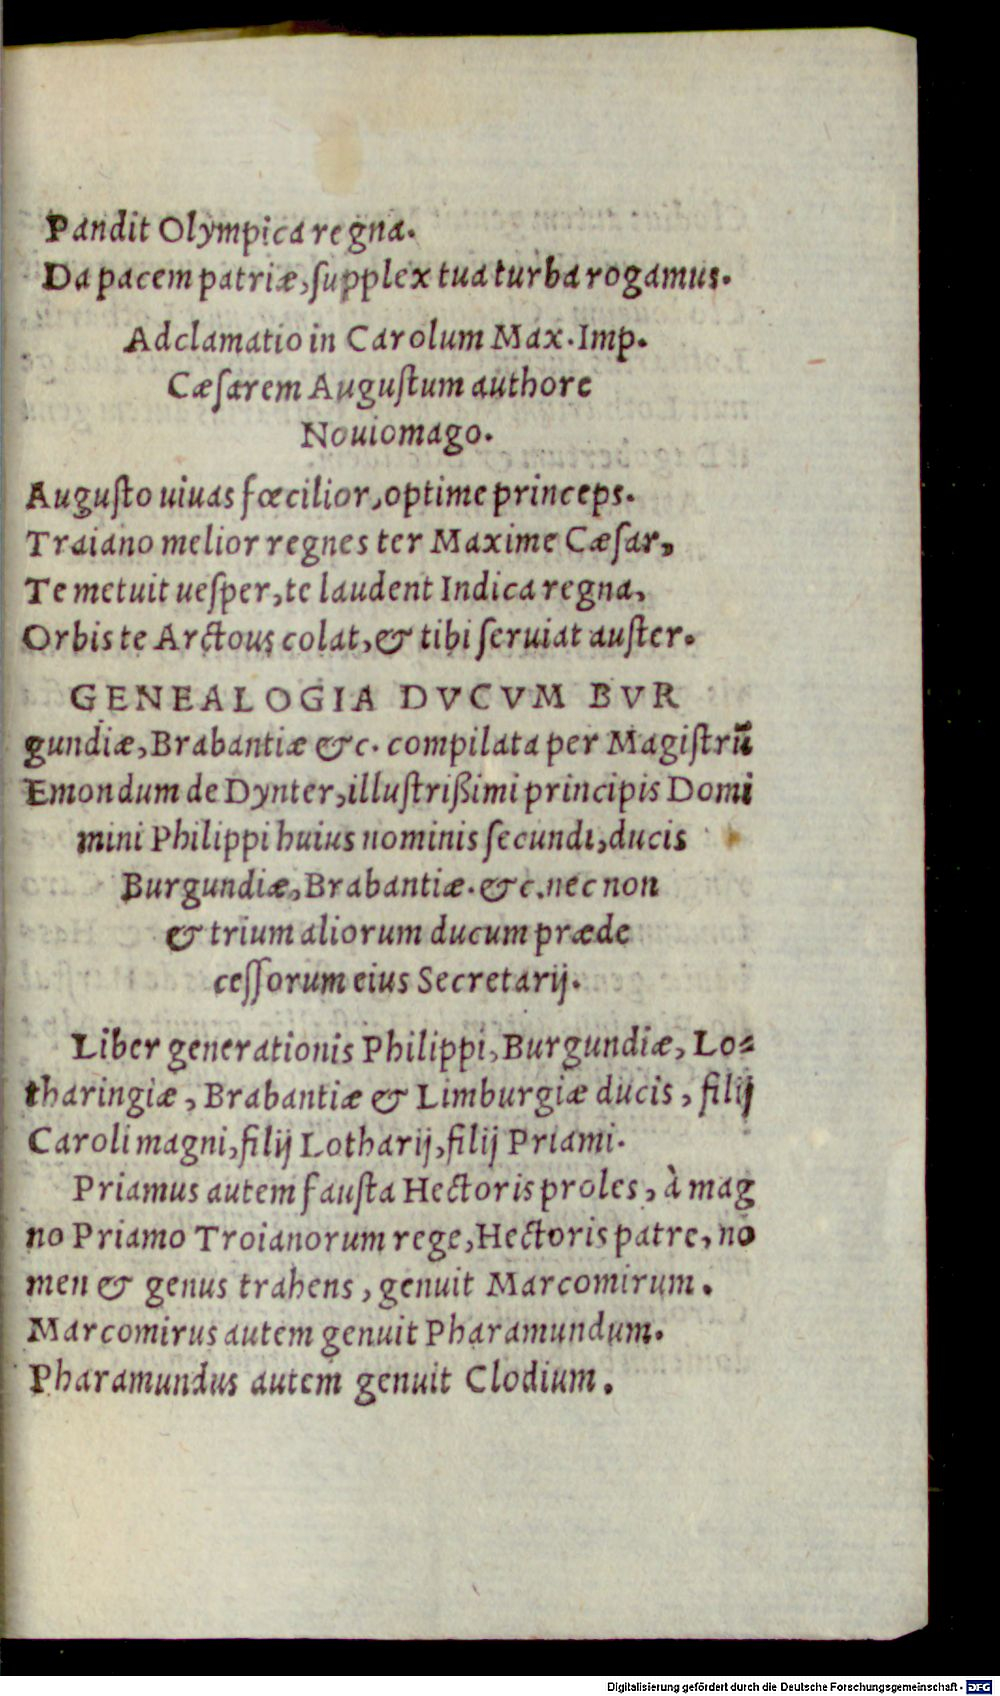 Pandit Olympica regna.
Da pacem patriæ, ſupplex tua turba rogamus.
Adclamatio in Carolum Max. Imp.
Cæſarem Auguſtum authore
Nouiomago.
Auguſto uiuas fœcilior, optime princeps.
Traiano melior regnes ter Maxime Cæſar,
Te metuit ueſper, te laudent Indica regna,
Orbis te Arctous colat, & tibi ſeruiat auſter.
GENEALOGIA DVCVM BVR
gundiæ, Brabantiæ &c. compilata per Magiſtrũ
Emondum de Dynter, illuſtrißimi principis Domi
mini Philippi huius nominis ſecundi, ducis
Burgundiæ, Brabantiæ. &c. nec non
& trium aliorum ducum præde
ceſſorum eius Secretarij.
Liber generationis Philippi, Burgundiæ, Lo⸗
tharingiæ, Brabantiæ & Limburgiæ ducis, filij
Caroli magni, filij Lotharij, filij Priami.
Priamus autem fauſta Hectoris proles, à mag
no Priamo Troianorum rege, Hectoris patre, no
men & genus trahens, genuit Marcomirum.
Marcomirus autem genuit Pharamundum.
Pharamundus autem genuit Clodium.
Digitalisierung gefördert durch die Deutsche Forschungsgemeinschaft - DFG